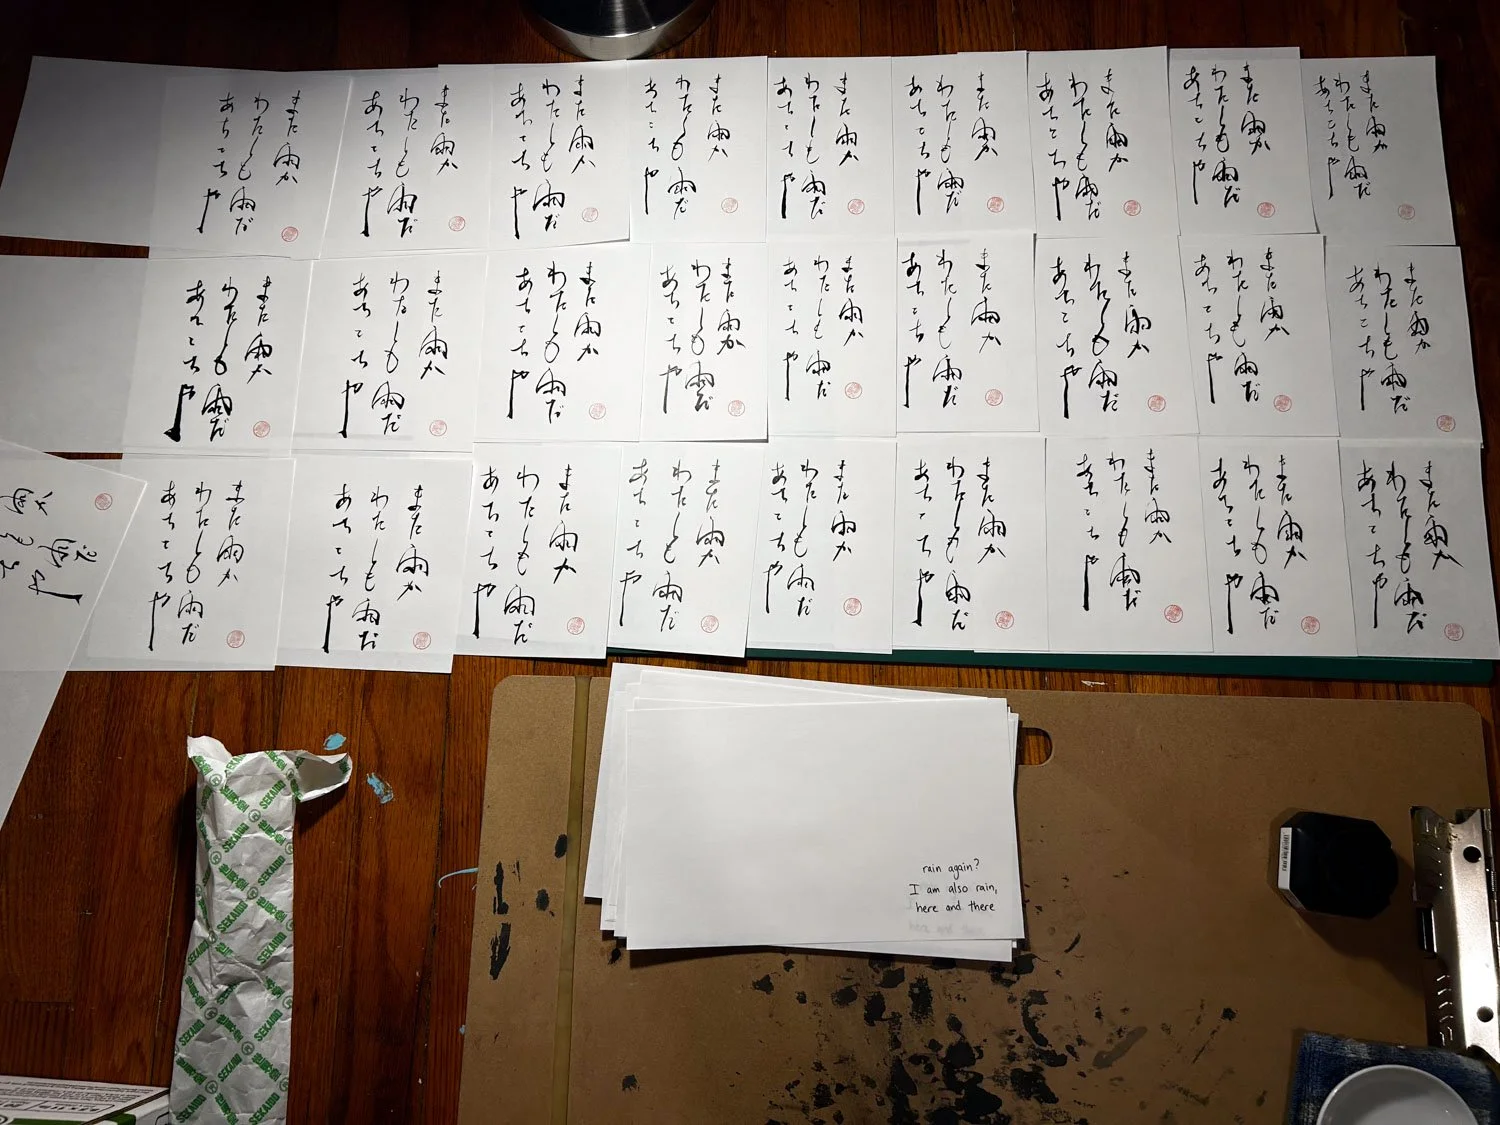 また雨か
わたしも雨だ
あちこちや
また雨か
わたしも雨だ
あちこちや
また雨か
わたしも雨だ
あちこちや
また雨か
わたしも雨だ
あちこちや
また雨か
わたしも雨だ
あちこちや
また雨か
わたしも雨だ
あちこちや
また雨か
わたしも雨だ
あちこちや
また雨か
わたしも雨だ
あちこちや
また雨か
わたしも雨だ
あちこちや
また雨か
わたしも雨だ
あちこちや
また雨か
わたしも雨だ
あちこちや
また雨か
わたしも雨だ
あちこちや
また雨か
わたしも雨だ
あちこちや
また雨か
わたしも雨だ
あちこちや
また雨か
わたしも雨だ
あちこちや
また雨か
わたしも雨だ
あちこちや
また雨か
わたしも雨だ
あちこちや
また雨か
わたしも雨だ
あちこちや
また雨か
わたしも雨だ
あちこちや
また雨か
わたしも雨だ
あちこちや
また雨か
わたしも雨だ
あちこちや
また雨か
わたしも雨だ
あちこちや
また雨か
わたしも雨だ
あちこちや
また雨か
わたしも雨だ
あちこちや
また雨か
わたしも雨だ
あちこちや
また雨か
わたしも雨だ
あちこちや
また雨か
わたしも雨だ
あちこちや
rain again?
I am also rain,
here and there
SEKAIDO
世界堂